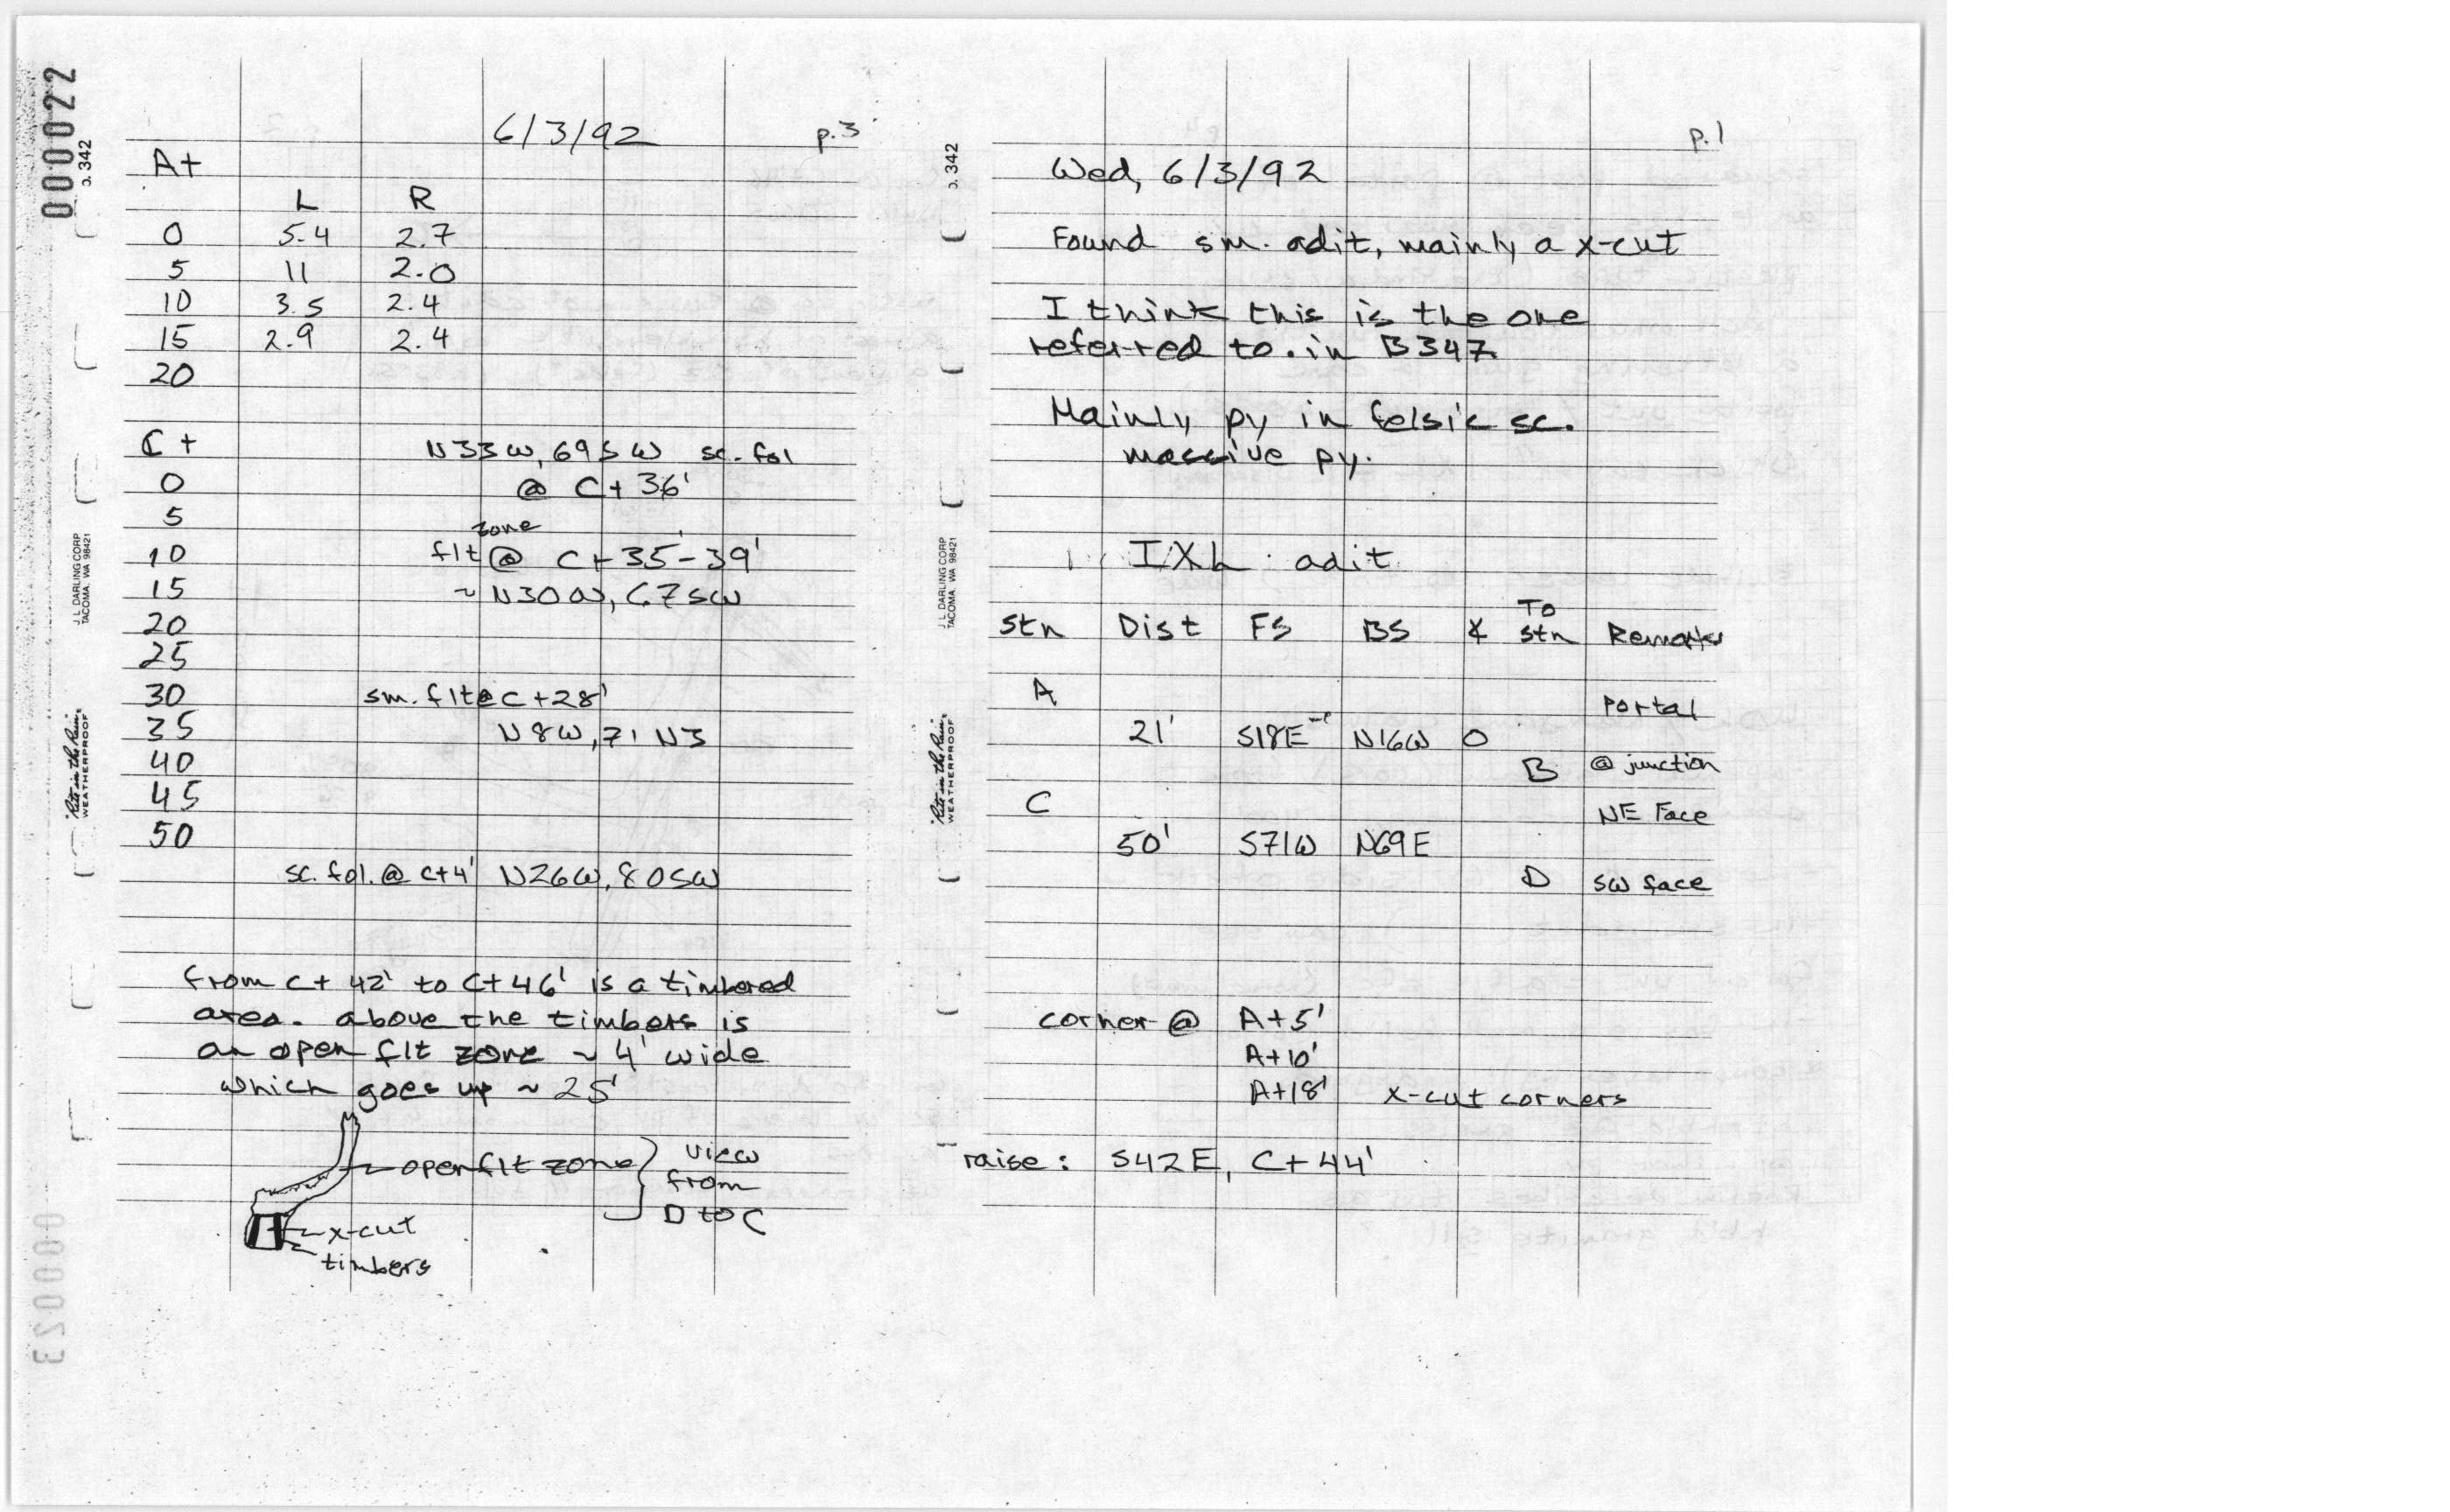 000022
p. 342
6/3/92 p.3
A+
L R
0 5.4 2.7
5 11 2.0
10 3.5 2.4
15 2.9 2.4
20
C+ N33W, 69SW sc. fol
0 @ C+36'
5 zone
10 flt @ C+35'-39'
15 ~ N30W, 67SW
20
25
30 sm. flt @ C+28'
35 N8W, 71
40
45
50
sc. fol. @ C+4' N26W, 80SW
from C+ 42' to C+46' is a timbered
area. above the timbers is
an open flt zone ~ 4' wide
which goes up ~ 25'
open flt zone } view
from
D to C
x-cut
timbers
J. L. DARLING CORP
TACOMA, WA 98421
"Rite in the Rain"
WEATHERPROOF
000023
p. 342
p.1
Wed, 6/3/92
Found sm. adit, mainly a x-cut
I think this is the one
referred to in B347
Mainly py in felsic sc.
massive py.
IXL adit
To
Stn Dist FS BS ∡ Stn Remarks
A Portal
21' S18E N16W 0
B @ junction
C NE Face
50' S71W N69E
D SW face
corner @ A+5'
A+10'
A+18' x-cut corners
raise: S42E, C+44'
J. L. DARLING CORP
TACOMA, WA 98421
"Rite in the Rain"
WEATHERPROOF